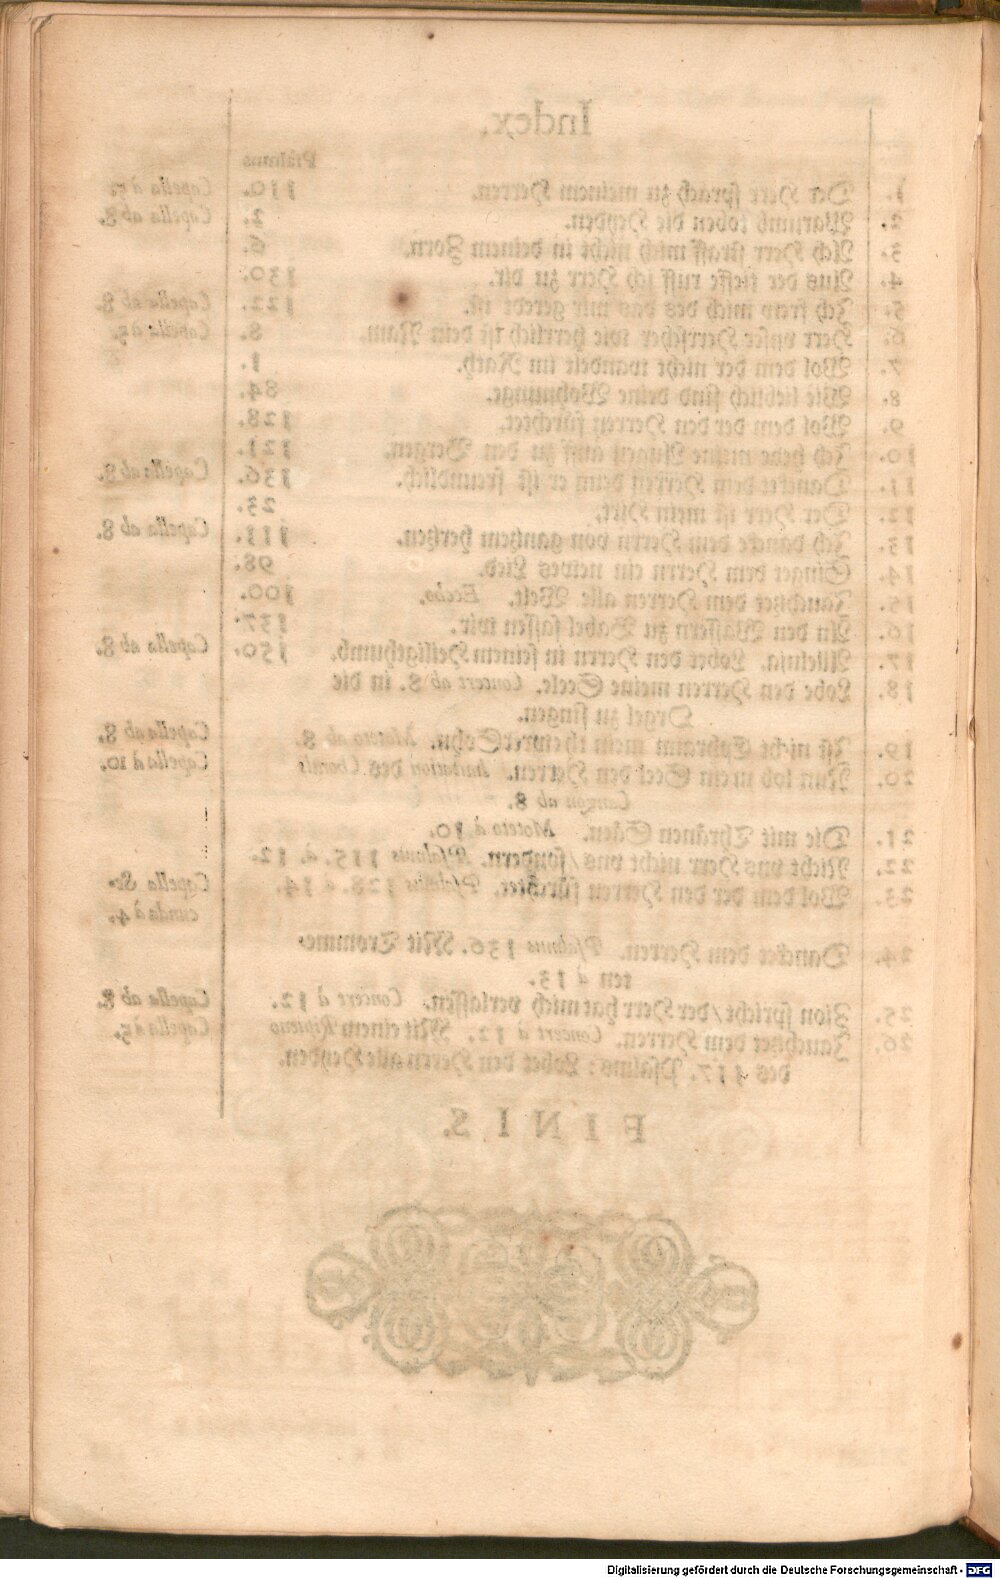 Index.
Psalmus
1. Der Herr sprach zu meinem Herren. 110. Capella à 5.
2. Warumb toben die Heyden. 2. Capella ab 8.
3. Ach Herr straff mich nicht in deinem Zorn. 6.
4. Aus der tieffe ruff ich Herr zu dir. 130.
5. Ich frew mich des das mir geredt ist. 122. Capella ab 8.
6. Herr unser Herrscher wie herrlich ist dein Nam. 8. Capella à 5.
7. Wol dem der nicht wandelt im Rath. 1.
8. Wie lieblich sind deine Wohnunge. 84.
9. Wol dem der den Herren fürchtet. 128.
10. Ich hebe meine Augen auff zu den Bergen. 121.
11. Dancket dem Herren denn er ist freundlich. 136. Capella ab 8.
12. Der Herr ist mein Hirt. 23.
13. Ich dancke dem Herrn von gantzem hertzen. 111. Capella ab 8
14. Singet dem Herrn ein newes Lied. 98.
15. Jauchzet dem Herren alle Welt. Eccho. 100.
16. An den Wassern zu Babel sassen wir. 137.
17. Alleluja. Lobet den Herrn in seinem Heiligthumb. 150. Capella ab 8.
18. Lobe den Herren meine Seele. Concert ab 8. in die
Orgel zu singen.
19. Ist nicht Ephraim mein thewrer Sohn. Moteto ab 8. Capella ab 8.
20. Nun lob mein Seel den Herren. Imitation des Chorals Capella à 10.
Canzon ab 8.
21. Die mit Thränen Säen. Moteto à 10.
22. Nicht uns Herr nicht uns/sondern. Psalmus 115. à. 12.
23. Wol dem der den Herren fürchtet. Psalmus 128. à 14. Capella Se-
cunda à 4.
24. Dancket dem Herren. Psalmus 136. Mit Tromme-
ten à 13.
25. Zion spricht/der Herr hat mich verlassen. Concert à 12. Capella ab 8.
26. Jauchzet dem Herren. Concert à 12. Mit einem Ripieno Capella à 5.
des 117. Psalms: Lobet den Herrn alle Heyden.
FINIS.
Digitalisierung gefördert durch die Deutsche Forschungsgemeinschaft - DFG